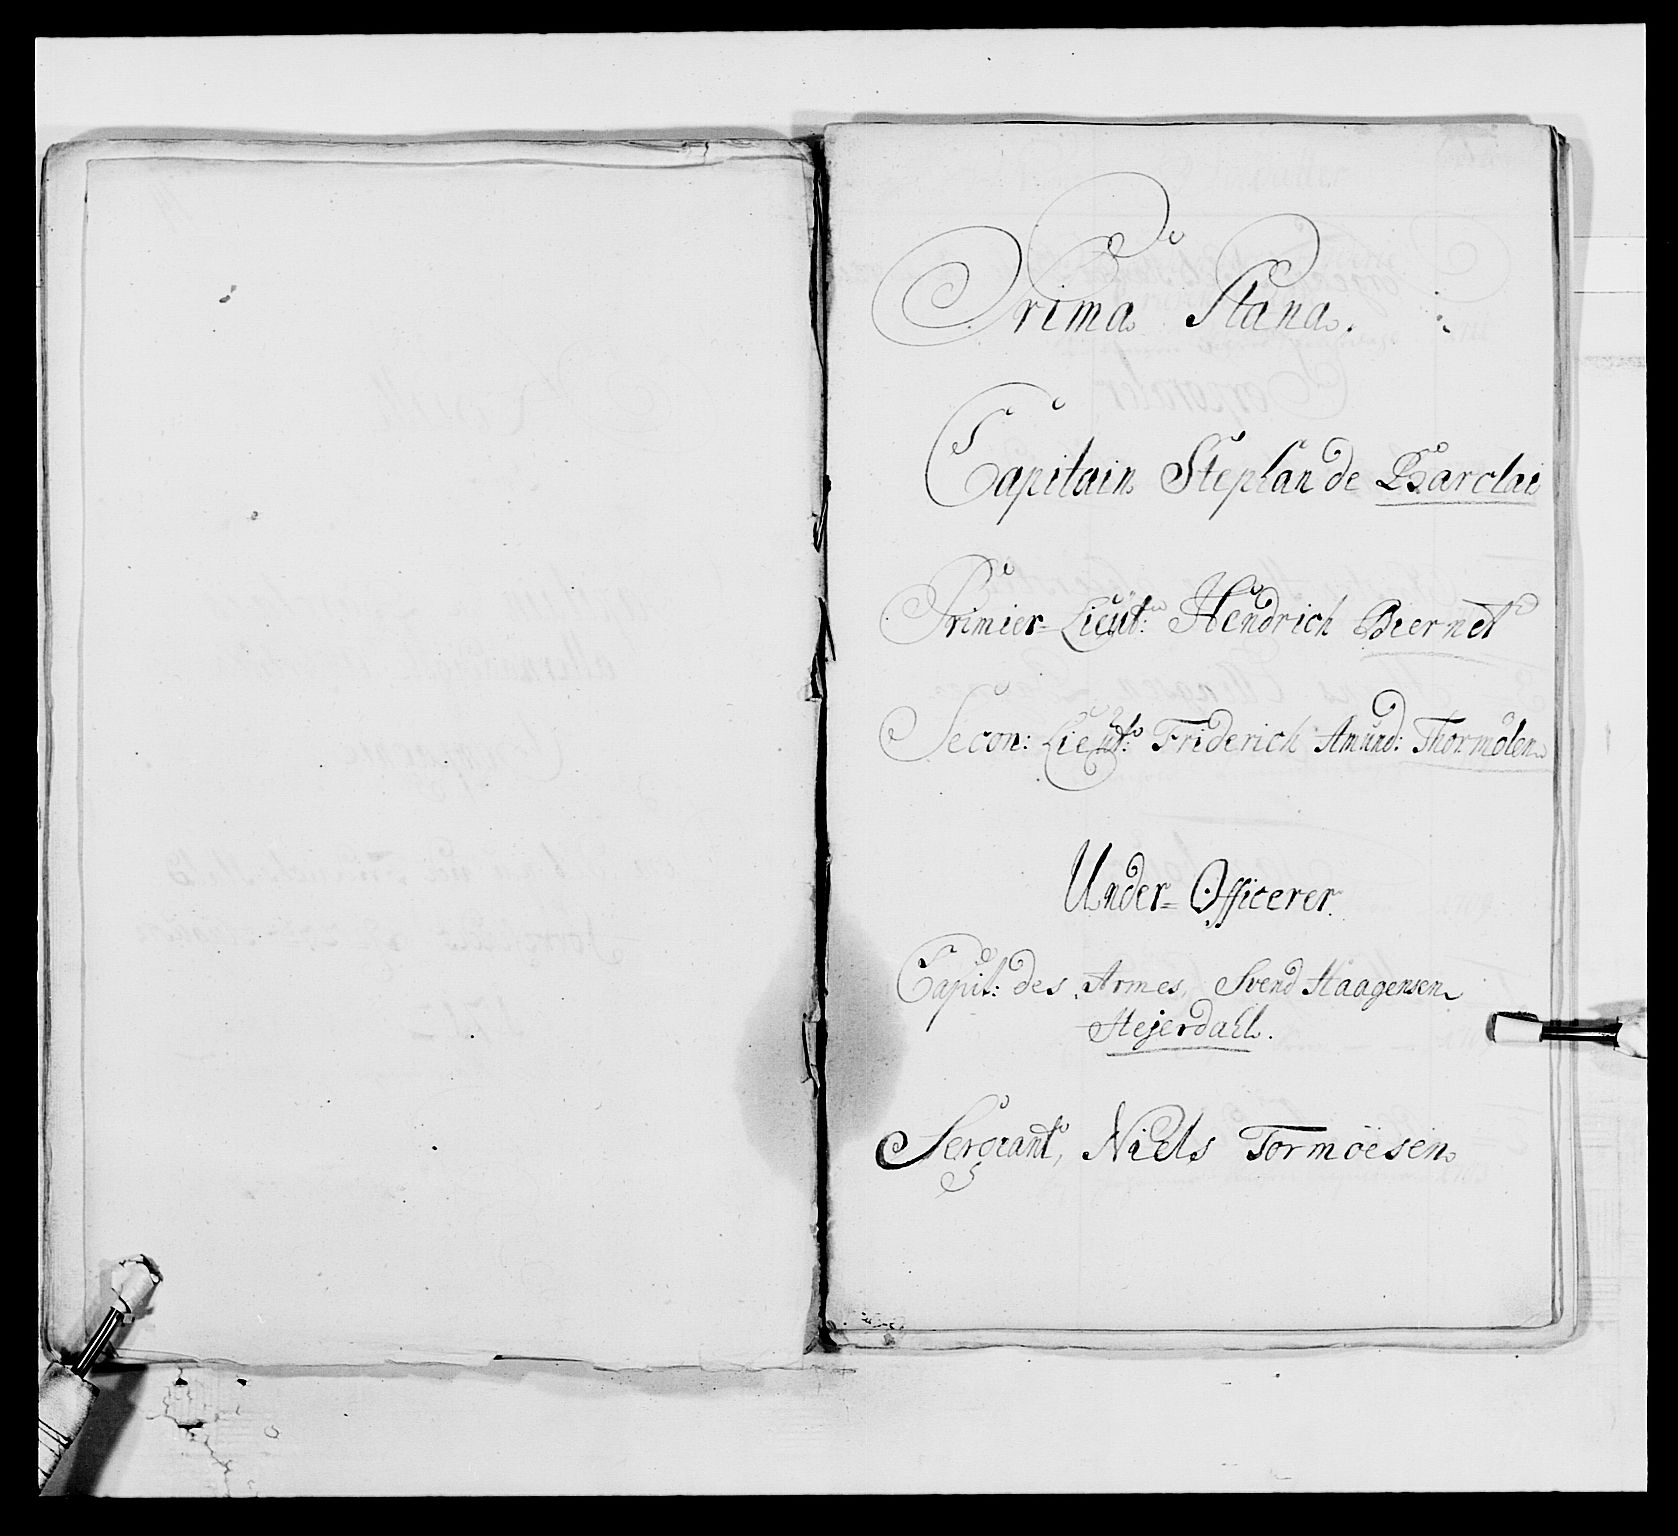 Prima Plana.
Capitain Stephan de Barclai
Primier-Lieut: Hendrich Biernet
Secon: Lieut: Friderich Amund: Thormölen
Under-Officerer
Capit: des Armes, Svend Haagensen
Hejerdahl.
Sergeant, Niels Tormöesen